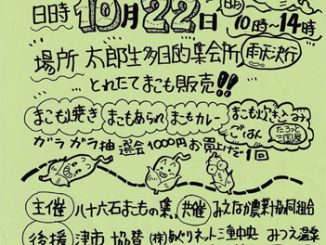 日時 10月22日 10時〜14時
場所 太郎生多目的集会所 雨天決行
とれたてまこも販売!!
まこも焼き まこもあられ まこもカレー まこも炊きこみごはん
ガラガラ抽選会1000円お買上げで1回
主催 八十六石まこもの集 共催 みえなか農業協同組合
後援 津市 協替 (株)あぐりネット三重中央 みつえ温泉